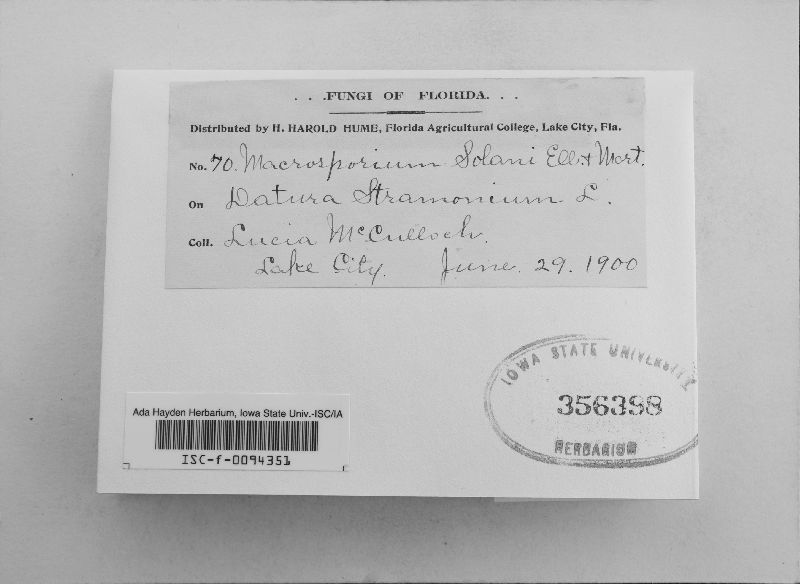 . . .FUNGI OF FLORIDA. . .
Distributed by H. HAROLD HUME, Florida Agricultural College, Lake City, Fla.
No. 70. Macrosporium Solani Ell & Mart.
On Datura Stramonium L.
Coll. Lucia McCulloch.
Lake City. June. 29. 1900
IOWA STATE UNIVERSITY
356398
HERBARIUM
Ada Hayden Herbarium, Iowa State Univ.-ISC/IA
ISC-f-0094351